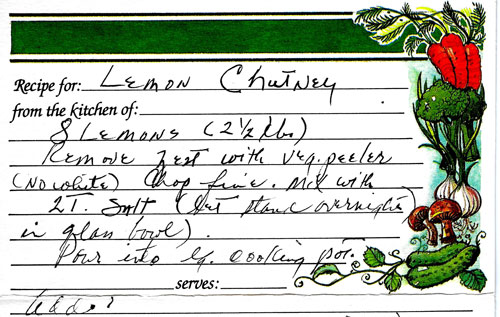 Recipe for: Lemon Chutney
from the kitchen of:
8 Lemons (2 1/2 lbs)
Remove zest with veg. peeler
(no white) Chop fine. Mix with
2 T. Salt (let stand overnight
in glass bowl).
Pour into lg. cooking pot.
serves:
Add: